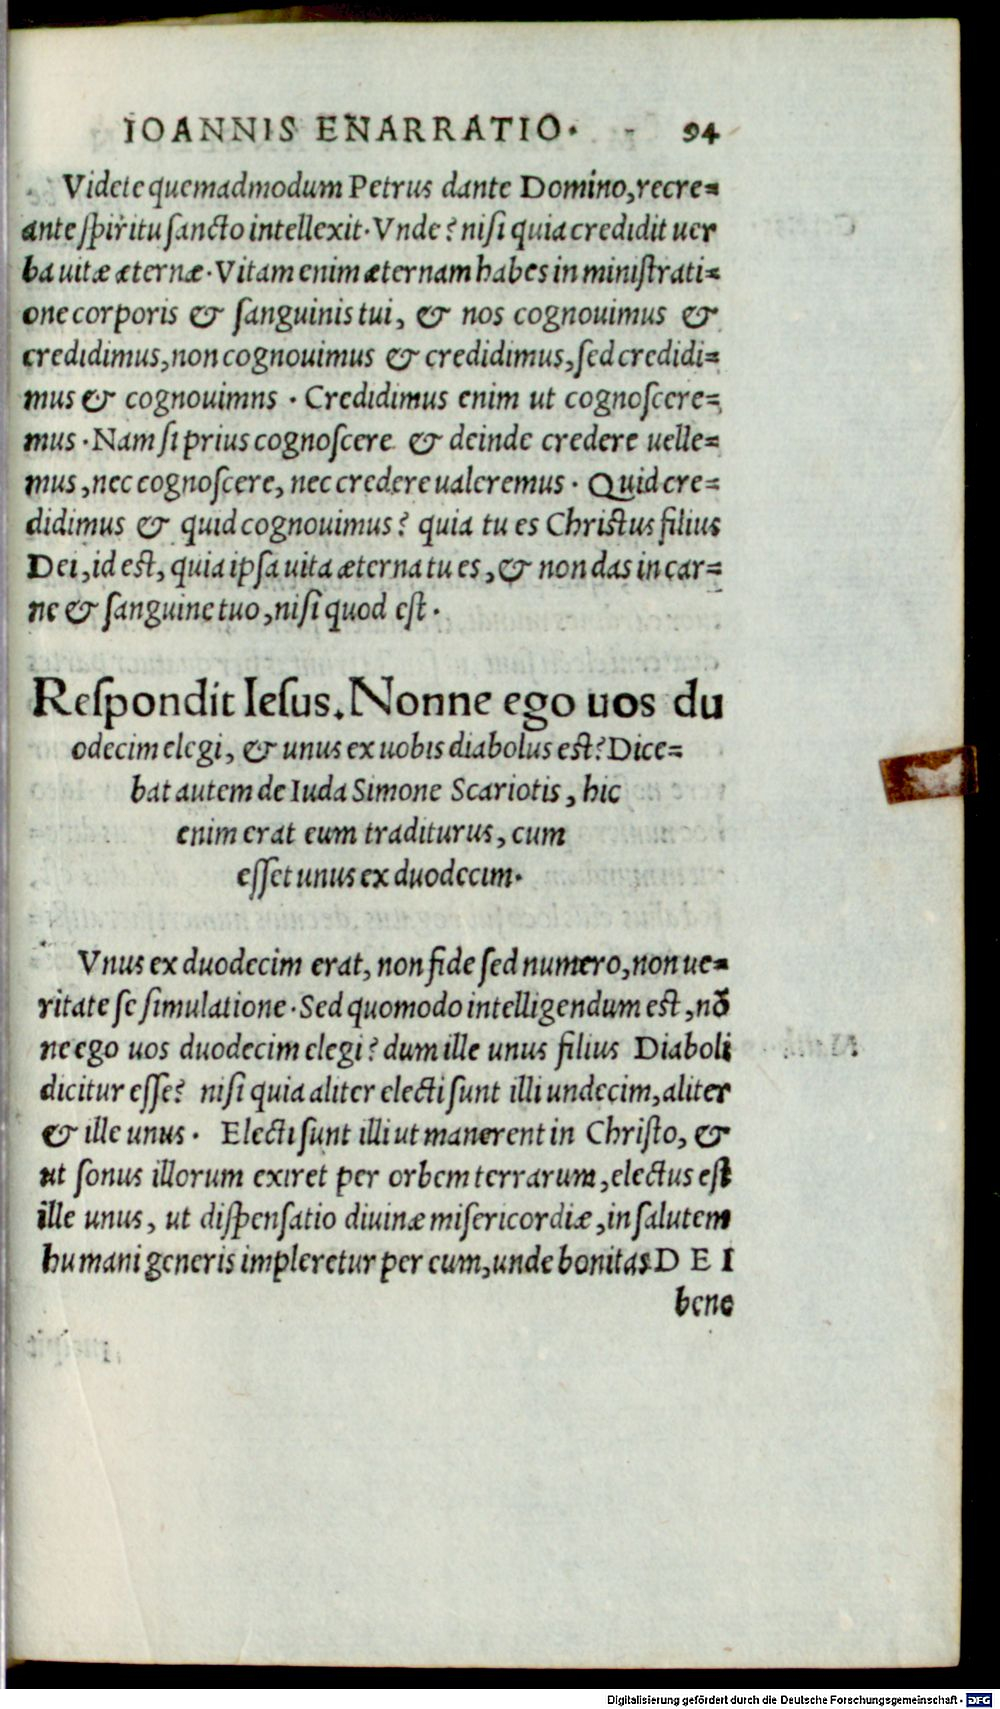 IOANNIS ENARRATIO. 94
Videte quemadmodum Petrus dante Domino, recre=
ante spiritu sancto intellexit. Vnde? nisi quia credidit uer
ba uitæ æternæ. Vitam enim æternam habes in ministrati=
one corporis & sanguinis tui, & nos cognouimus &
credidimus, non cognouimus & credidimus, sed credidi=
mus & cognouimns. Credidimus enim ut cognoscere=
mus. Nam si prius cognoscere & deinde credere uelle=
mus, nec cognoscere, nec credere ualeremus. Quid cre=
didimus & quid cognouimus? quia tu es Christus filius
Dei, id est, quia ipsa uita æterna tu es, & non das in car=
ne & sanguine tuo, nisi quod est.
Respondit Iesus. Nonne ego uos du
odecim elegi, & unus ex uobis diabolus est? Dice=
bat autem de Iuda Simone Scariotis, hic
enim erat eum traditurus, cum
esset unus ex duodecim.
Vnus ex duodecim erat, non fide sed numero, non ue=
ritate se simulatione. Sed quomodo intelligendum est, nõ
ne ego uos duodecim elegi? dum ille unus filius Diaboli
dicitur esse? nisi quia aliter electi sunt illi undecim, aliter
& ille unus. Electi sunt illi ut manerent in Christo, &
ut sonus illorum exiret per orbem terrarum, electus est
ille unus, ut dispensatio diuinæ misericordiæ, in salutem
humani generis impleretur per eum, unde bonitas DEI
bene
Digitalisierung gefördert durch die Deutsche Forschungsgemeinschaft - DFG